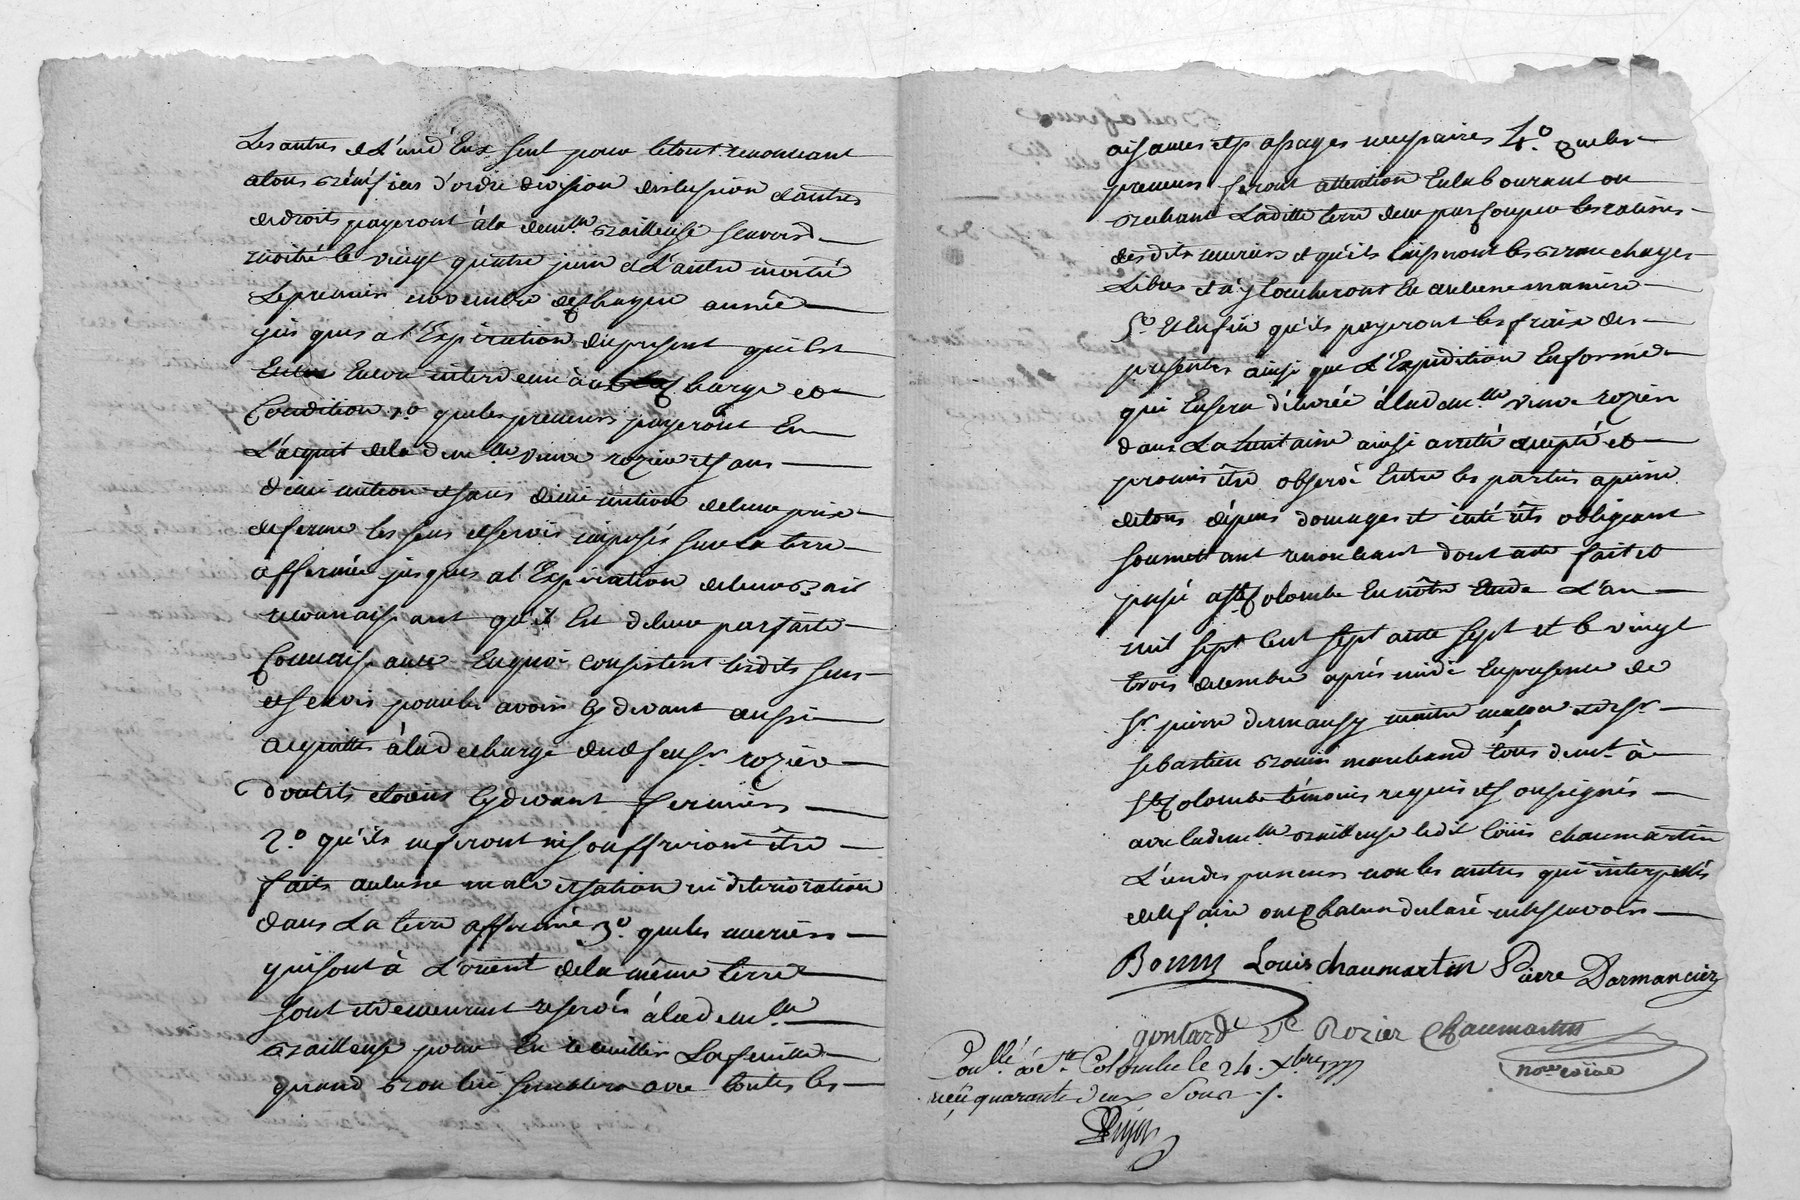 Les autres et L'un d'Eux seul pour le tout renonceant
atous Bénéfices d'ordre division discusion et autres
de droits payeront à la demlle Bailleuse Scavoird
moitié le vingt quatre juin et L'autre moitié
Le premier novembre de chaque année
jusques a l'Expiration du present qui Est
Encor interdenu aux charge et
Condition 1o que les preneurs payeront En
L'acquit de la demlle veuve rozier et sans
diminution et sans diminution de leur prix
de ferme les sens et servis imposés sur La terre
affermée jusques a l'Expiration de leur Bail
reconnaissant qu'il Est de leur parfaite
Connaissance En quoi consistent lesdits sens
et servis pour les avoir Cy devant aussi
acquittés à la decharge dudefeu sr. rozier
dont ils etoient Cy devant fermiers
2o qu'ils ne feront ni souffriront être
faits aucune malversation ni deterioration
dans La terre affermée 3o que les muriers
qui sont à L'orient de la même terre
sont et demeurent reservés à lad demlle
Bailleuse pour En recueillir La feuille
quand Bon lui semblera avec toutes les
aisances et passages necessaires 4o que les
preneurs feront attention En labourant ou
Bechant Laditte terre de ne pas couper les racines
desdits muriers et qu'ils laisseront les Branchages
Libres et n'y toucheront En aucune maniere
5o Et Enfin qu'ils payeront les frais des
presentes ainsi que L'Expedition En forme
qui En sera délivrée à lad demlle veuve rozier
dans La huitaine ainsi arreté accepté et
promis être observé Entre les parties a peine
de tous dépens domages et intérêts obligeant
soumettant renonceant dont acte fait et
passé a Ste Colombe En nôtre Etude L'an
mil sept cent septante sept et le vingt
trois decembre après midi En presence de
Sr. pierre dermansy maitre maçon et de Sr.
sebastien Bonin marchand tous demt. à
Ste Colombe témoins requis et sousignés
avec lademlle Bailleuse ledit Louis chaumartin
L'un des preneurs non les autres qui interpellés
de le faire ont Chacun declaré ne le scavoir
Bonin Louis chaumartin Pierre Darmancier
gontard Ve Rozier Chaumartin
nore roial
Conllé. à Ste Colombe le 24. Xbre 1777
reçu quarante deux Sous